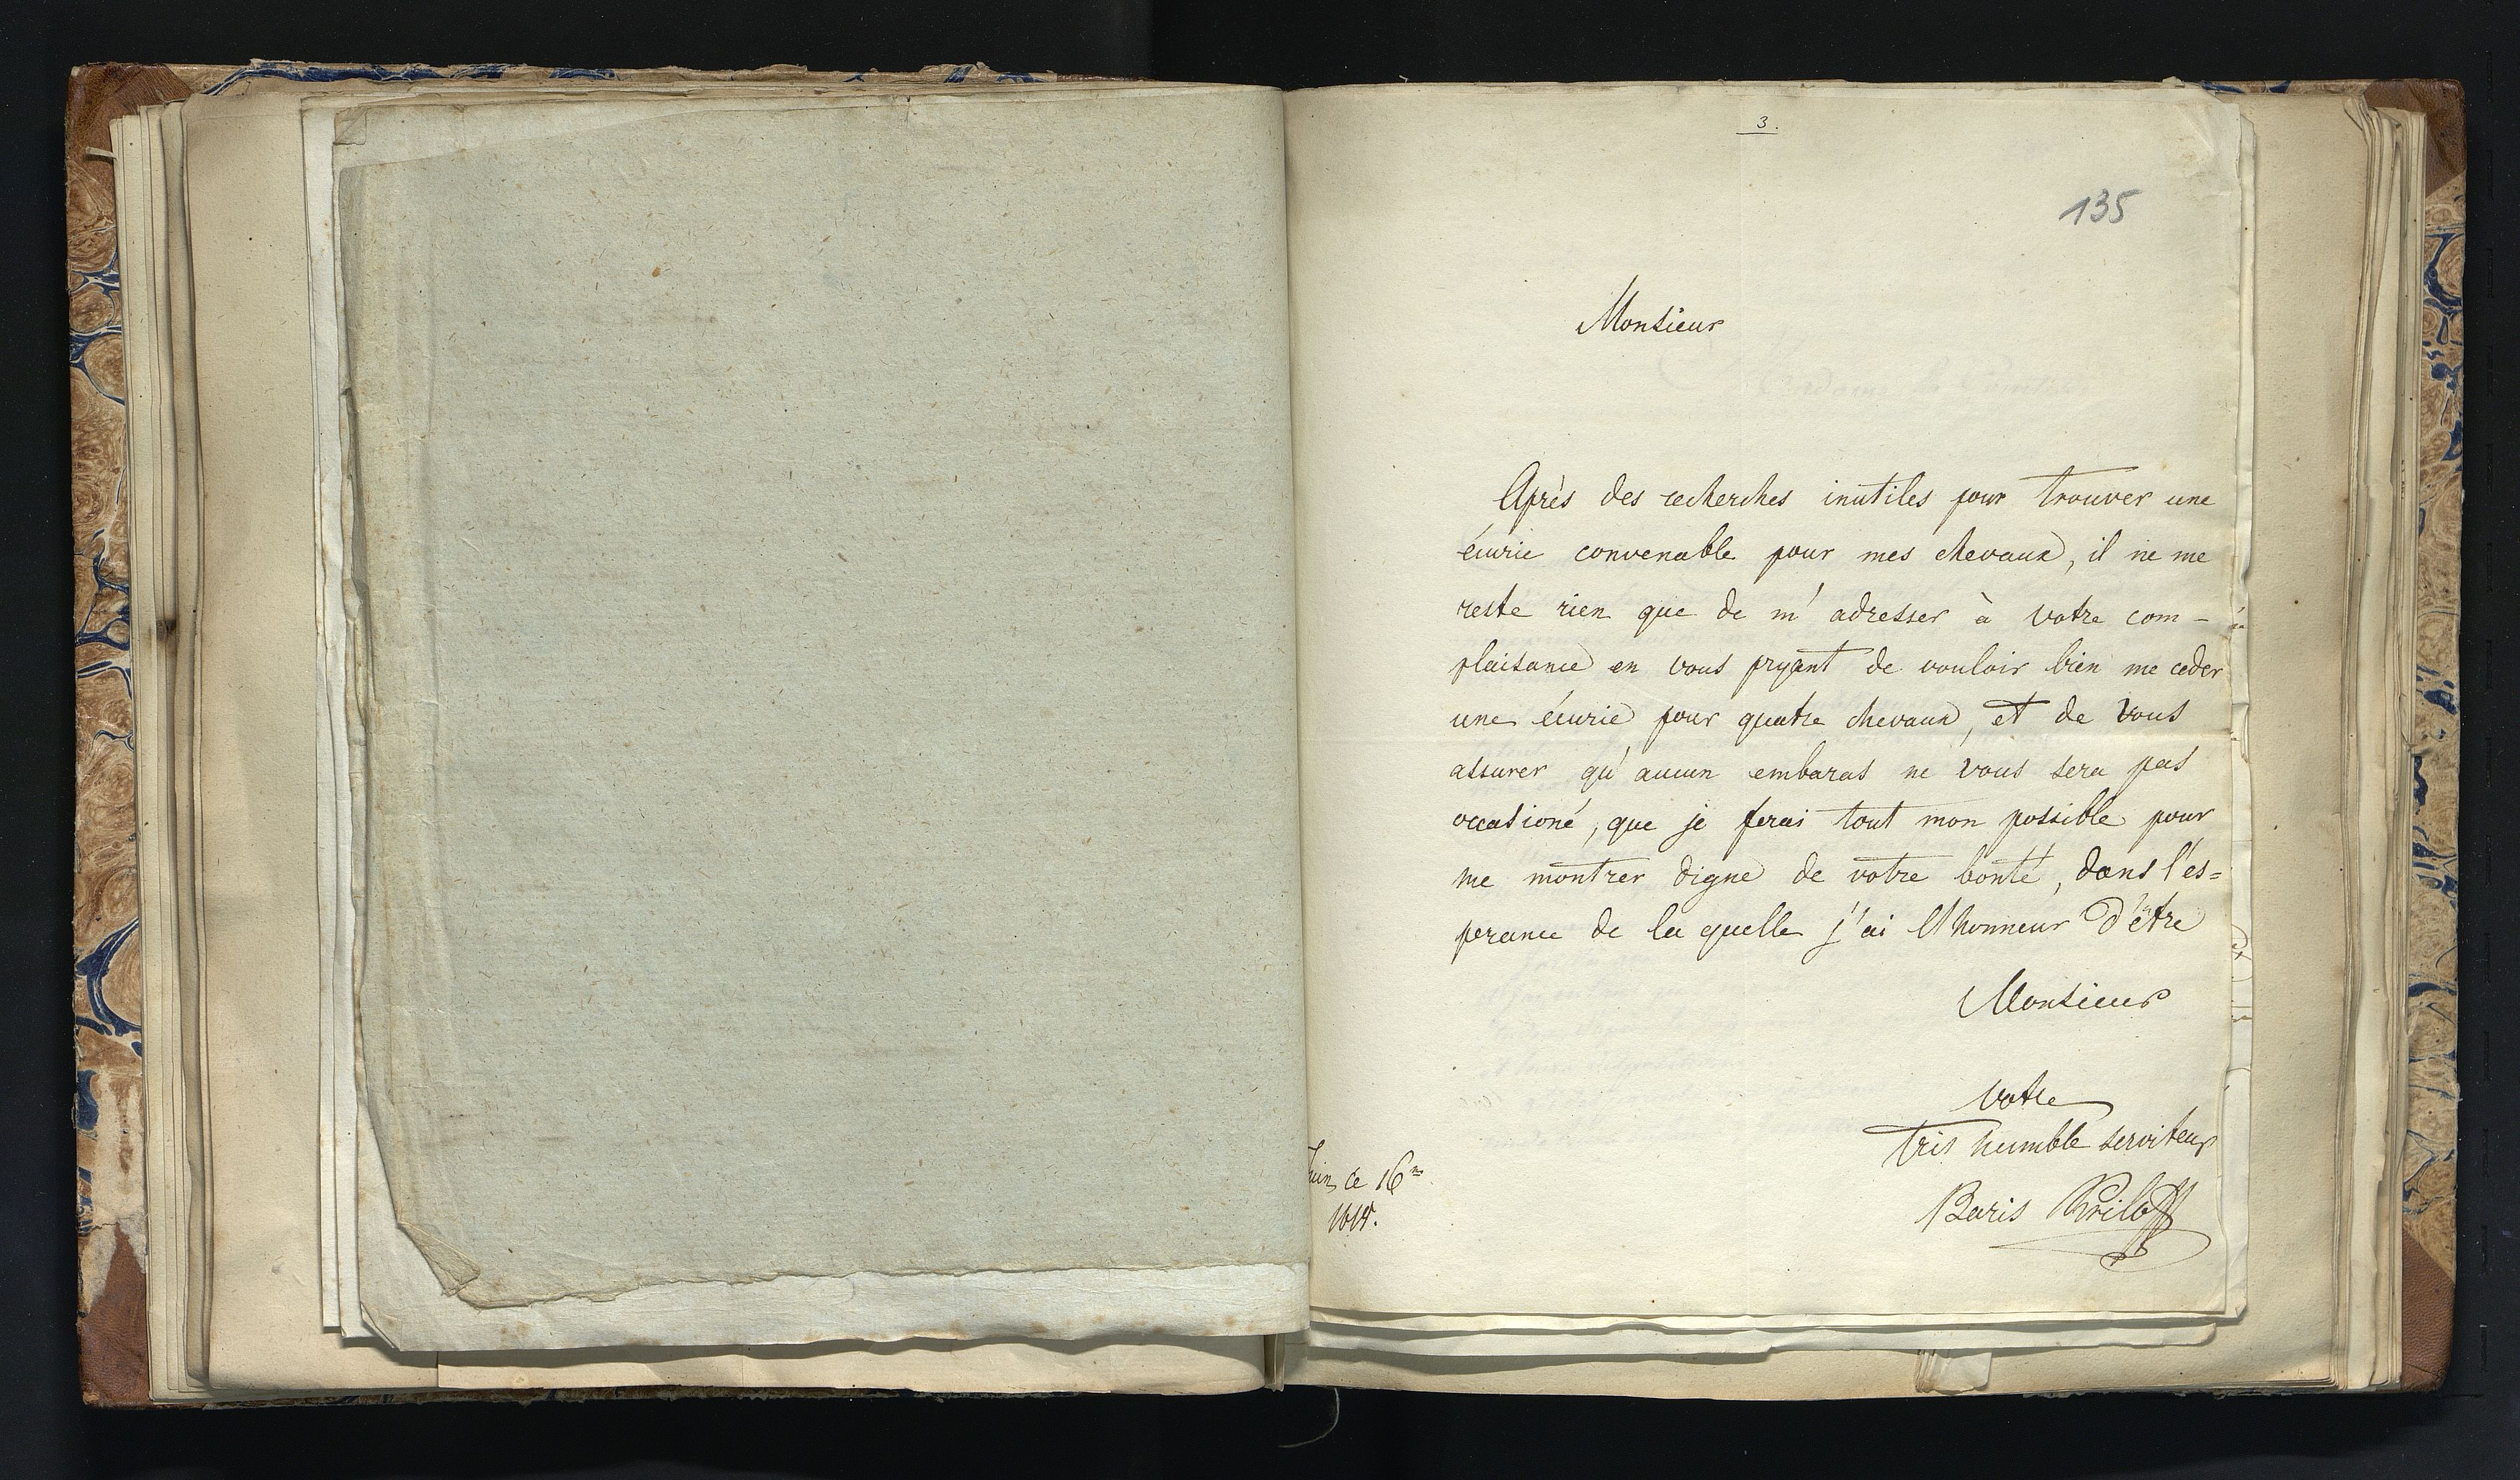 3.
135
Monsieur
Après des recherches inutiles pour trouver une
écurie convenable pour mes chevaux, il ne me
reste rien que de m'adresser à votre com-
plaisance en vous pryant de vouloir bien me ceder
une écurie pour quatre chevaux, et de vous
assurer qu'aucun embaras ne vous sera pas
occasioné, que je ferai tout mon possible pour
me montrer digne de votre bonté, dans l'és=
perance de la quelle j'ai l'honneur d'être
Monsieur
votre
tris humble serviteur
Boris
ce 16